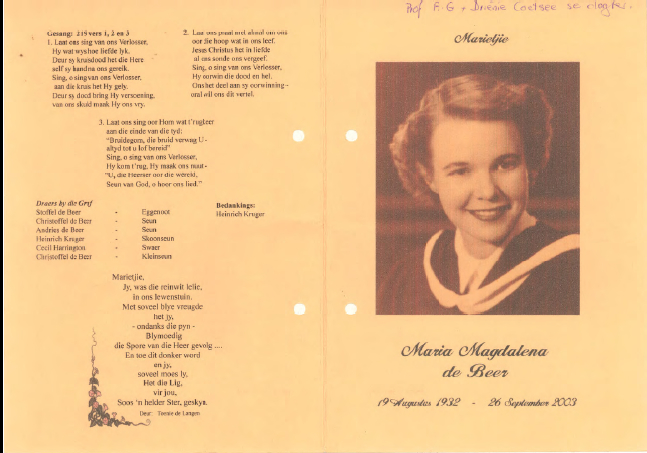 Prof F.G + Driénie Coetsee se dogter.
Gesang: 219 vers 1, 2 en 3
1. Laat ons sing van ons Verlosser,
Hy wat wyshoe liefde lyk.
Deur sy kruisdood het die Here
self sy hand na ons gereik.
Sing, o sing van ons Verlosser,
aan die kruis het Hy gely.
Deur sy dood bring Hy versoening,
van ons skuld maak Hy ons vry.
2. Laat ons praat met almal om ons
oor die hoop wat in ons leef.
Jesus Christus het in liefde
al ons sonde ons vergeef.
Sing, o sing van ons Verlosser,
Hy oorwin die dood en hel.
Ons het deel aan sy oorwinning -
oral wil ons dit vertel.
3. Laat ons sing oor Hom wat t'rugkeer
aan die einde van die tyd:
"Bruidegom, die bruid verwag U -
altyd tot u lof bereid"
Sing, o sing van ons Verlosser,
Hy kom t'rug, Hy maak ons nuut -
"U, die Heerser oor die wêreld,
Seun van God, o hoor ons lied."
Draers by die Graf
Stoffel de Beer - Eggenoot
Christoffel de Beer - Seun
Andries de Beer - Seun
Heinrich Kruger - Skoonseun
Cecil Harrington - Swaer
Christoffel de Beer - Kleinseun
Bedankings:
Heinrich Kruger
Marietjie,
Jy, was die reinwit lelie,
in ons lewenstuin.
Met soveel blye vreugde
het jy,
- ondanks die pyn -
Blymoedig
die Spore van die Heer gevolg ....
En toe dit donker word
en jy,
soveel moes ly,
Het die Lig,
vir jou,
Soos 'n helder Ster, geskyn.
Deur: Teenie de Langen
Marietjie
Maria Magdalena
de Beer
19 Augustus 1932 - 26 September 2003